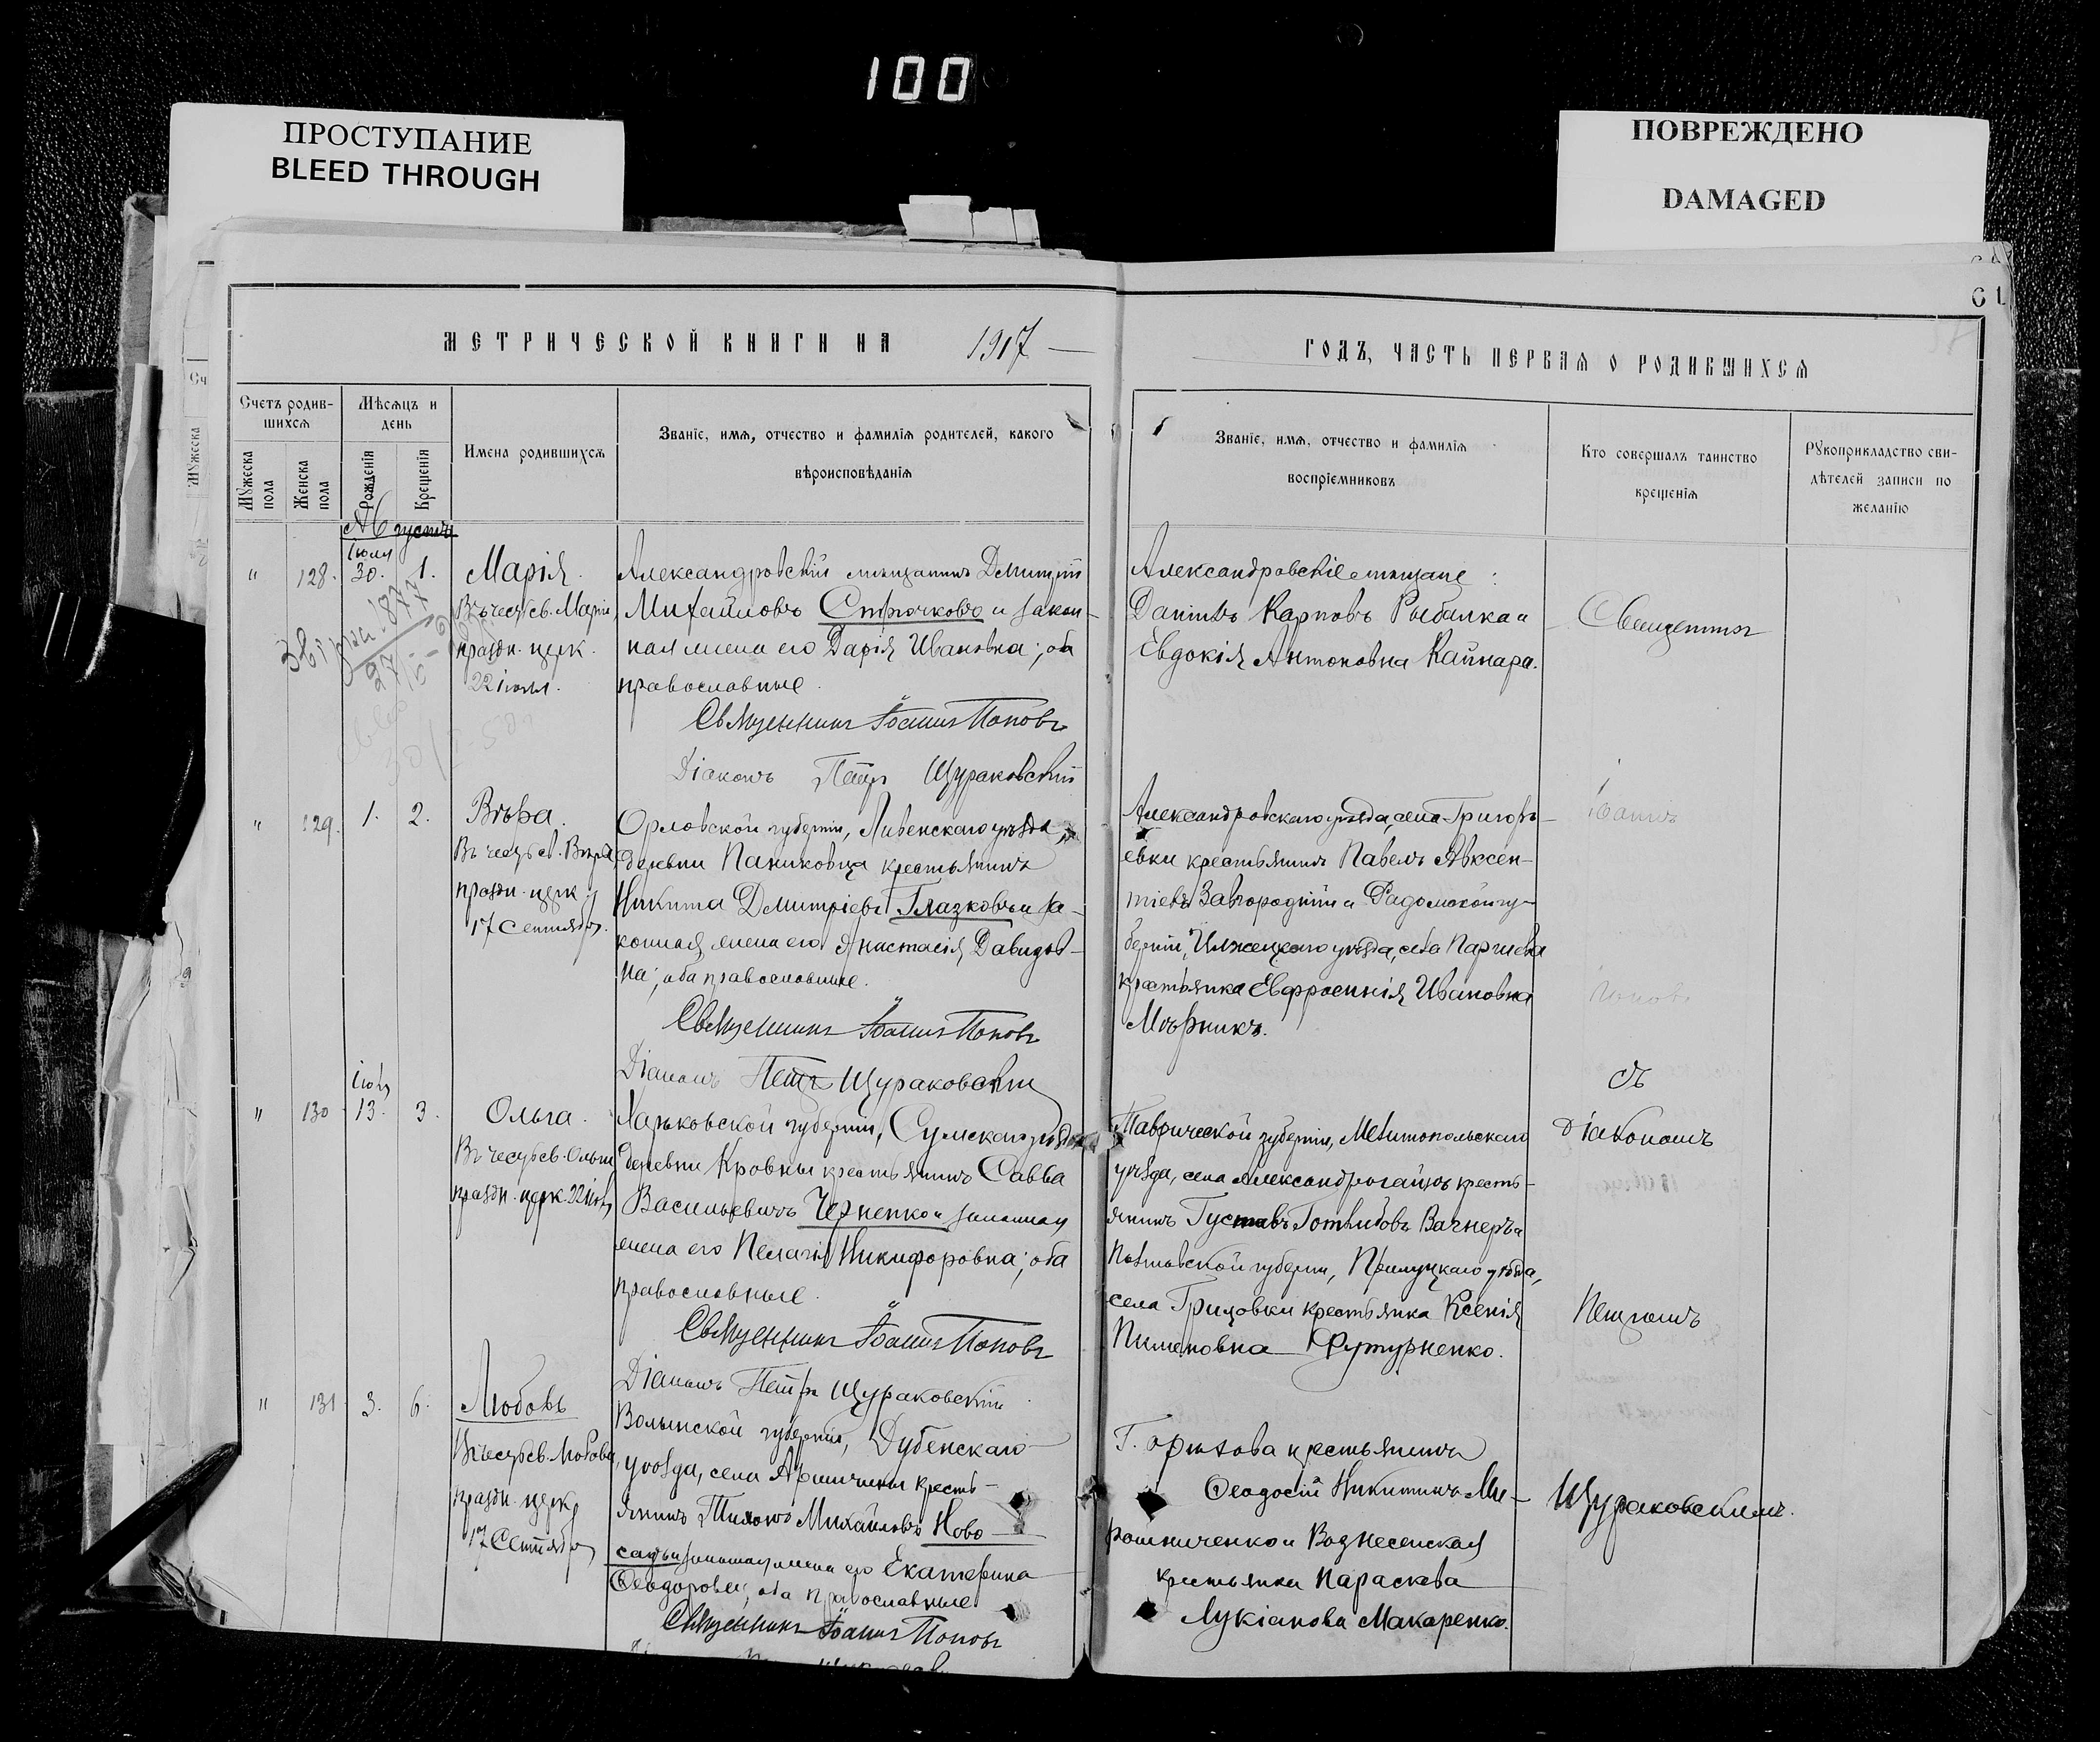 100
ПРОСТУПАНИЕ
BLEED THROUGH
ПОВРЕЖДЕНО
DAMAGED
МЕТРИЧЕСКОЙ КНИГИ НА 1917
ГОДЪ, ЧАСТЬ ПЕРВАЯ О РОДИВШИХСЯ
Счетъ родив-
шихся
Мѣсяцъ и
день
Мужеска
пола
Женска
пола
Рожденія
Крещенія
Имена родившихся
Званіе, имя, отчество и фамилія родителей, какого
вѣроисповѣданія
Званіе, имя, отчество и фамилія
воспріемниковъ
Кто совершалъ таинство
крещенія
Рукоприкладство сви-
дѣтелей записи по
желанію
Августъ
Іюля
" 128. 30. 1. Марія.
Въ честь св. Маріи,
праздн. церк.
22 іюля.
Александровскій мѣщанинъ Димитрій
Михайловъ Стрючковъ и закон-
ная жена его Дарія Ивановна; оба
православные.
Священникъ Іоаннъ Поповъ
Діаконъ Петръ Щураковскій
Александровскіе мѣщане:
Даніилъ Карповъ Рыбалка и
Евдокія Антоновна Кайнара.
Священникъ
" 129. 1. 2. Вѣра.
Въ честь св. Вѣры,
праздн. церк.
17 Сентября.
Орловской губерніи, Ливенскаго уѣзда,
деревни Паниковца крестьянинъ
Никита Димитріевъ Глазковъ и за-
конная жена его Анастасія Давидов-
на; оба православные.
Священникъ Іоаннъ Поповъ
Діаконъ Петръ Щураковскій
Александровскаго уѣзда, села Григорь-
евки крестьянинъ Павелъ Авксен-
тіевъ Завгородній и Радомской гу-
берніи, Илжецкаго уѣзда, села
крестьянка Евфросинія Ивановна
Іоаннъ
Поповъ
Іюля
" 130. 13. 3. Ольга.
Въ честь св. Ольги
праздн. церк.
Харьковской губерніи, Сумскаго уѣзда
деревни Кровны крестьянинъ Савва
Васильевичъ Черненко и законная
жена его Пелагія Никифоровна; оба
православные.
Священникъ Іоаннъ Поповъ
Діаконъ Петръ Щураковскій
Таврической губерніи, Мелитопольскаго
уѣзда, села кресть-
янинъ Густавъ Готлибовъ Вагнеръ и
Полтавской губерніи, Прилуцкаго уѣзда,
села Грицовки крестьянка Ксенія
Пименовна
съ
Діакономъ
Петромъ
" 131. 3. 6. Любовь
Въ честь св. Любови,
праздн. церк.
17 Сентября
Волынской губерніи, Дубенскаго
уѣзда, села кресть-
янинъ Тихонъ Михайловъ Ново-
садъ и законная жена его Екатерина
Ѳеодоровна, оба православные
Священникъ Іоаннъ Поповъ
Г. Орѣхова крестьянинъ
Ѳеодосій Никитинъ Ми-
рошниченко и Вознесенская
крестьянка Параскева
Лукіанова Макаренко.
Щураковскимъ.